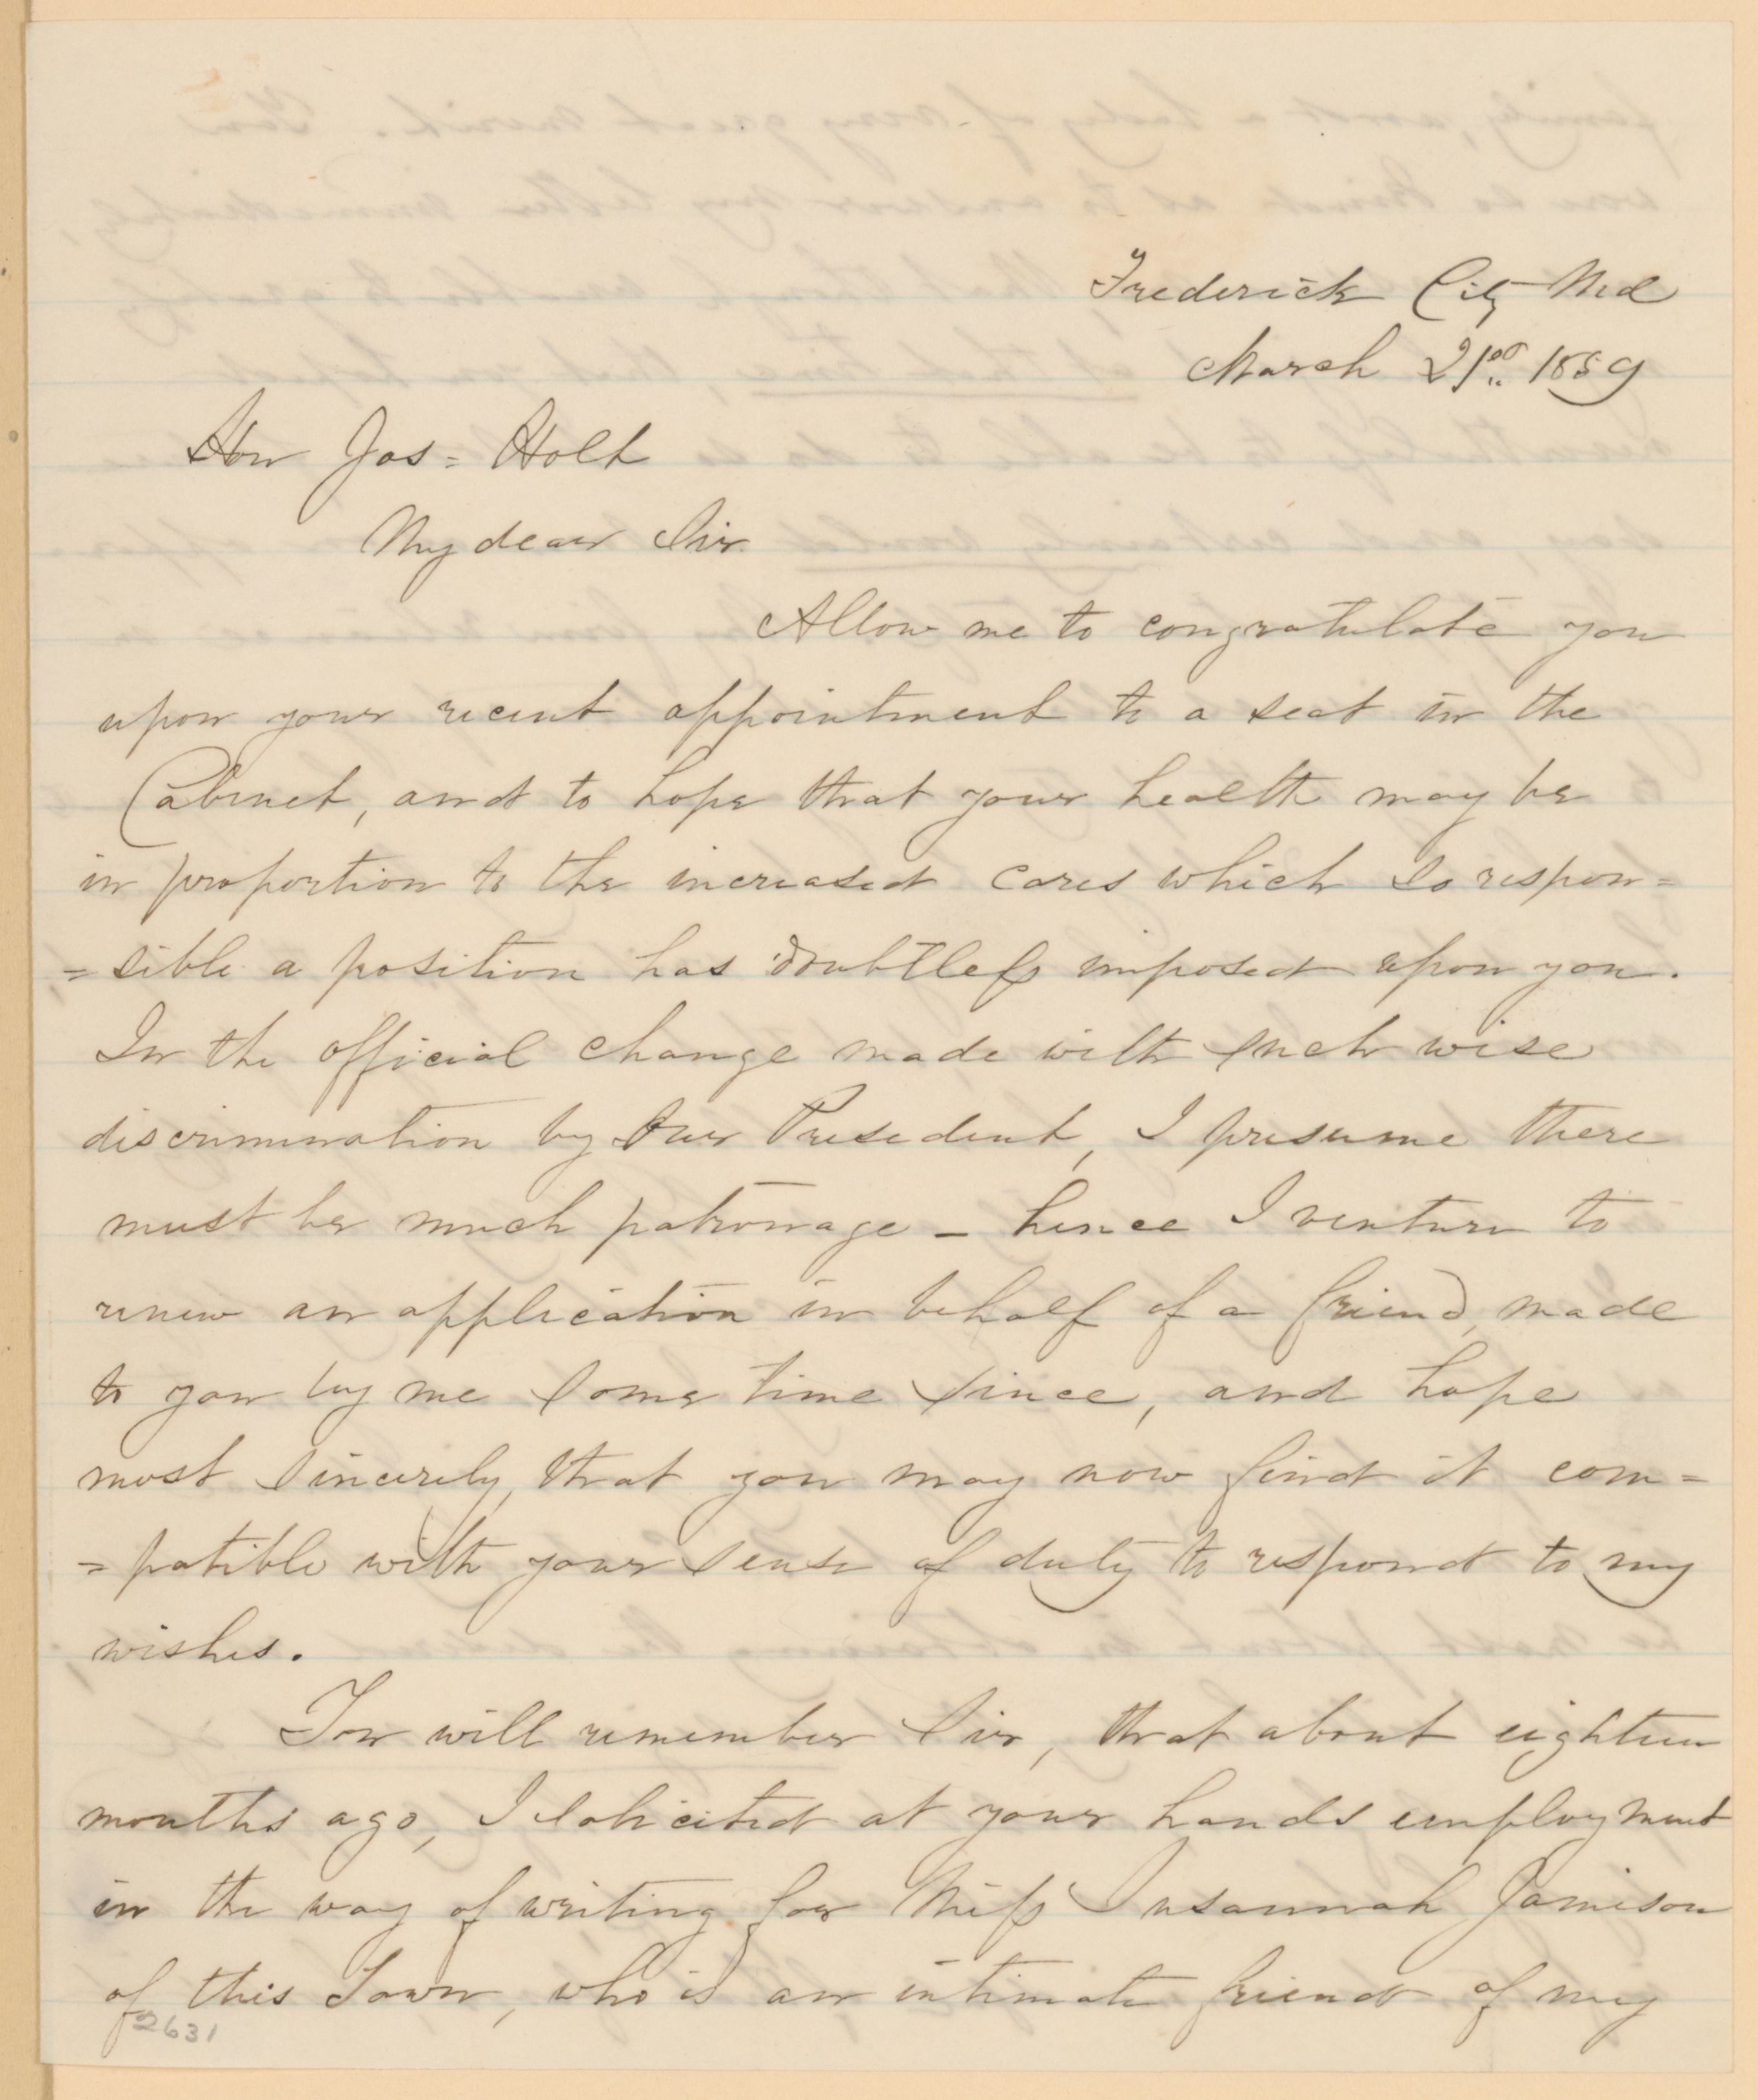 Frederick City Md
March 21st. 1859
Hon Jos= Holt
My dear Sir
Allow me to congratulate you
upon your recent appointment to a seat in the
Cabinet, and to hope that your health may be
in proportion to the increased cares which so respon=
=sible a position has doubtless imposed upon you.
In the official change made with such wise
discrimination by our President, I presume there
must be much patronage – hence I venture to
renew an application in behalf of a friend, made
to you by me some time since, and hope
most sincerely, that you may now find it com=
=patible with your sense of duty to respond to my
wishes.
You will remember Sir, that about eighteen
months ago, I solicited at your hands employment
in the way of writing for Miss Susannah Jamison
of this Town, who is an intimate friend of my
2631